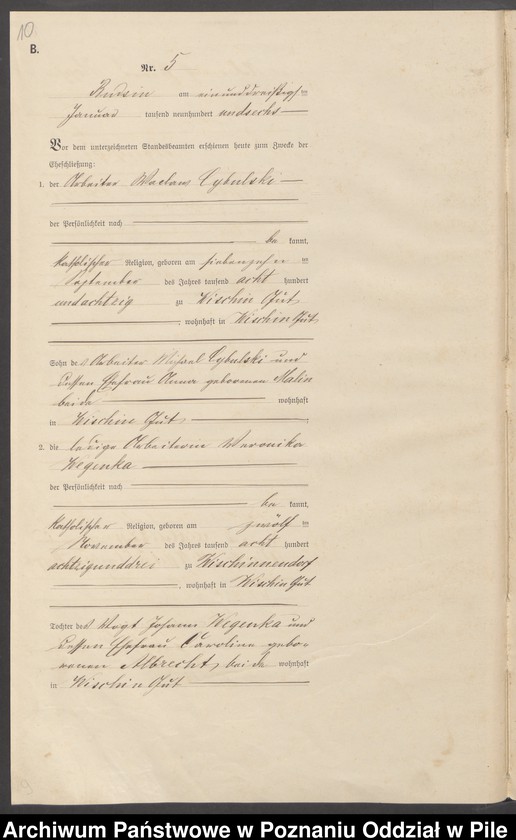 10
B.
Nr. 5
Budsin am einunddreißigsten
Januar tausend neunhundert undsechs
Vor dem unterzeichneten Standesbeamten erschienen heute zum Zwecke der
Eheschließung:
1. der Arbeiter Waclaw Cybulski
der Persönlichkeit nach
be kannt,
katholischer Religion, geboren am siebenzehnten
September des Jahres tausend acht hundert
undachtzig zu Wischin Gut
, wohnhaft in Wischin Gut
Sohn des Arbeiter Michael Cybulski und
dessen Ehefrau Anna geborenen Malin
beide wohnhaft
in Wischin Gut
2. die ledige Arbeiterin Weronika
Wegenka
der Persönlichkeit nach
be kannt,
katholischer Religion, geboren am zwölften
November des Jahres tausend acht hundert
achtzigunddrei zu Wischinnendorf
, wohnhaft in Wischin Gut
Tochter des Vogt Johann Wegenka und
dessen Ehefrau Caroline gebo-
renen Albrecht, beide wohnhaft
in Wischin Gut
Archiwum Państwowe w Poznaniu Oddział w Pile